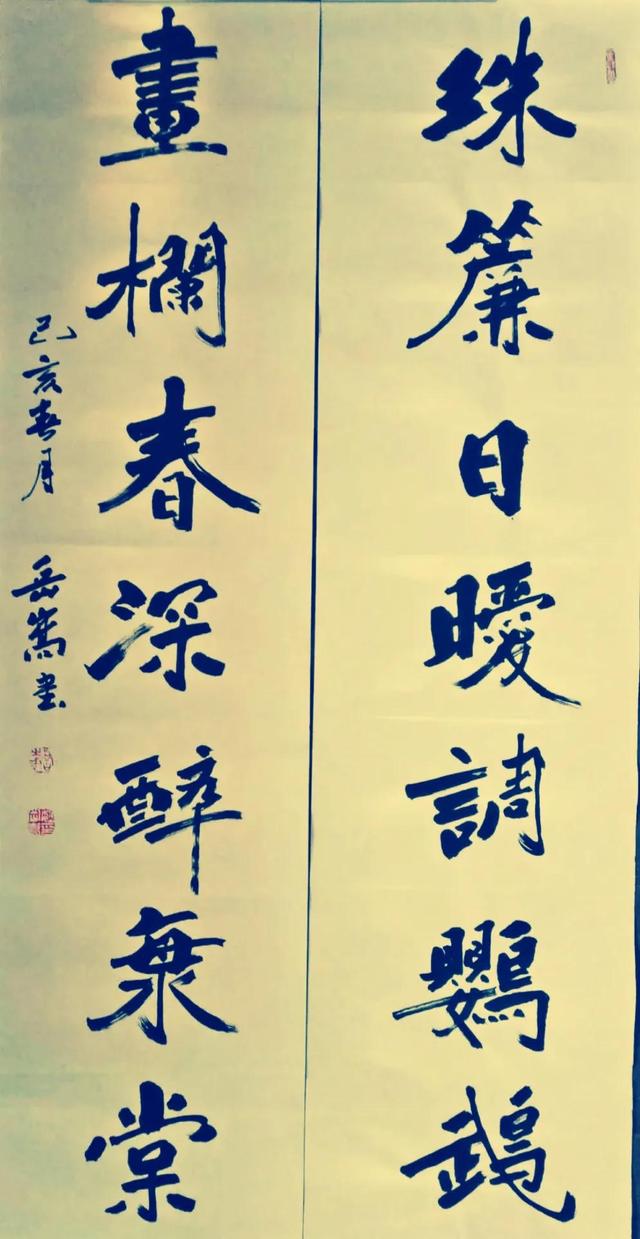 珠簾日暖調鸚鵡
畫欄春深醉海棠
己亥春月 岳嵩書